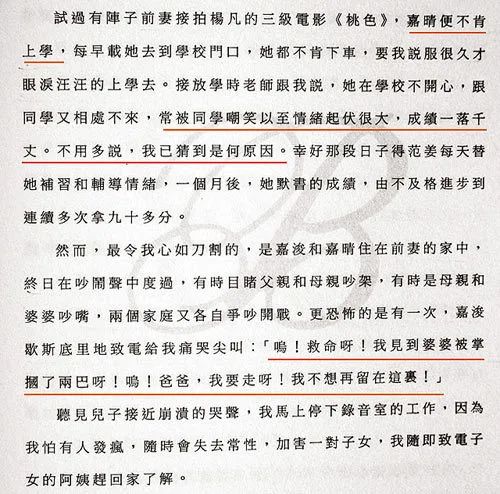 試過有陣子前妻接拍楊凡的三級電影《桃色》，嘉晴便不肯
上學，每早載她去到學校門口，她都不肯下車，要我說服很久才
眼淚汪汪的上學去。接放學時老師跟我説，她在學校不開心，跟
同學又相處不來，常被同學嘲笑以至情緒起伏很大，成績一落千
丈。不用多説，我已猜到是何原因。幸好那段日子得范姜每天替
她補習和輔導情緒，一個月後，她默書的成績，由不及格進步到
連續多次拿九十多分。
然而，最令我心如刀割的，是嘉浚和嘉晴住在前妻的家中，
終日在吵鬧聲中度過，有時目睹父親和母親吵架，有時是母親和
婆婆吵嘴，兩個家庭又各自爭吵開戰。更恐怖的是有一次，嘉浚
歇斯底里地致電給我痛哭尖叫：「嗚！救命呀！我見到婆婆被掌
摑了兩巴呀！嗚！爸爸，我要走呀！我不想再留在這裏！」
聽見兒子接近崩潰的哭聲，我馬上停下錄音室的工作，因為
我怕有人發瘋，隨時會失去常性，加害一對子女，我隨即致電子
女的阿姨趕回家了解。